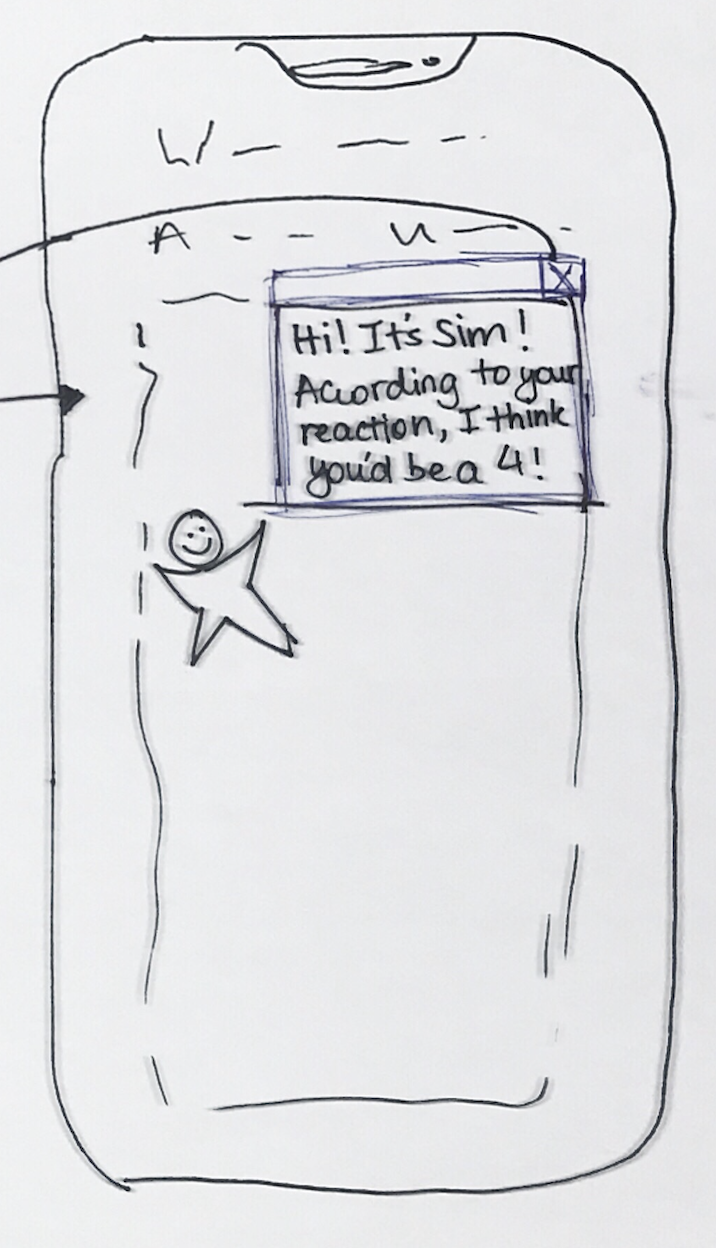 W
A U
X
Hi! It's Sim!
Acuording to your
reaction, I think
you'd be a 4!